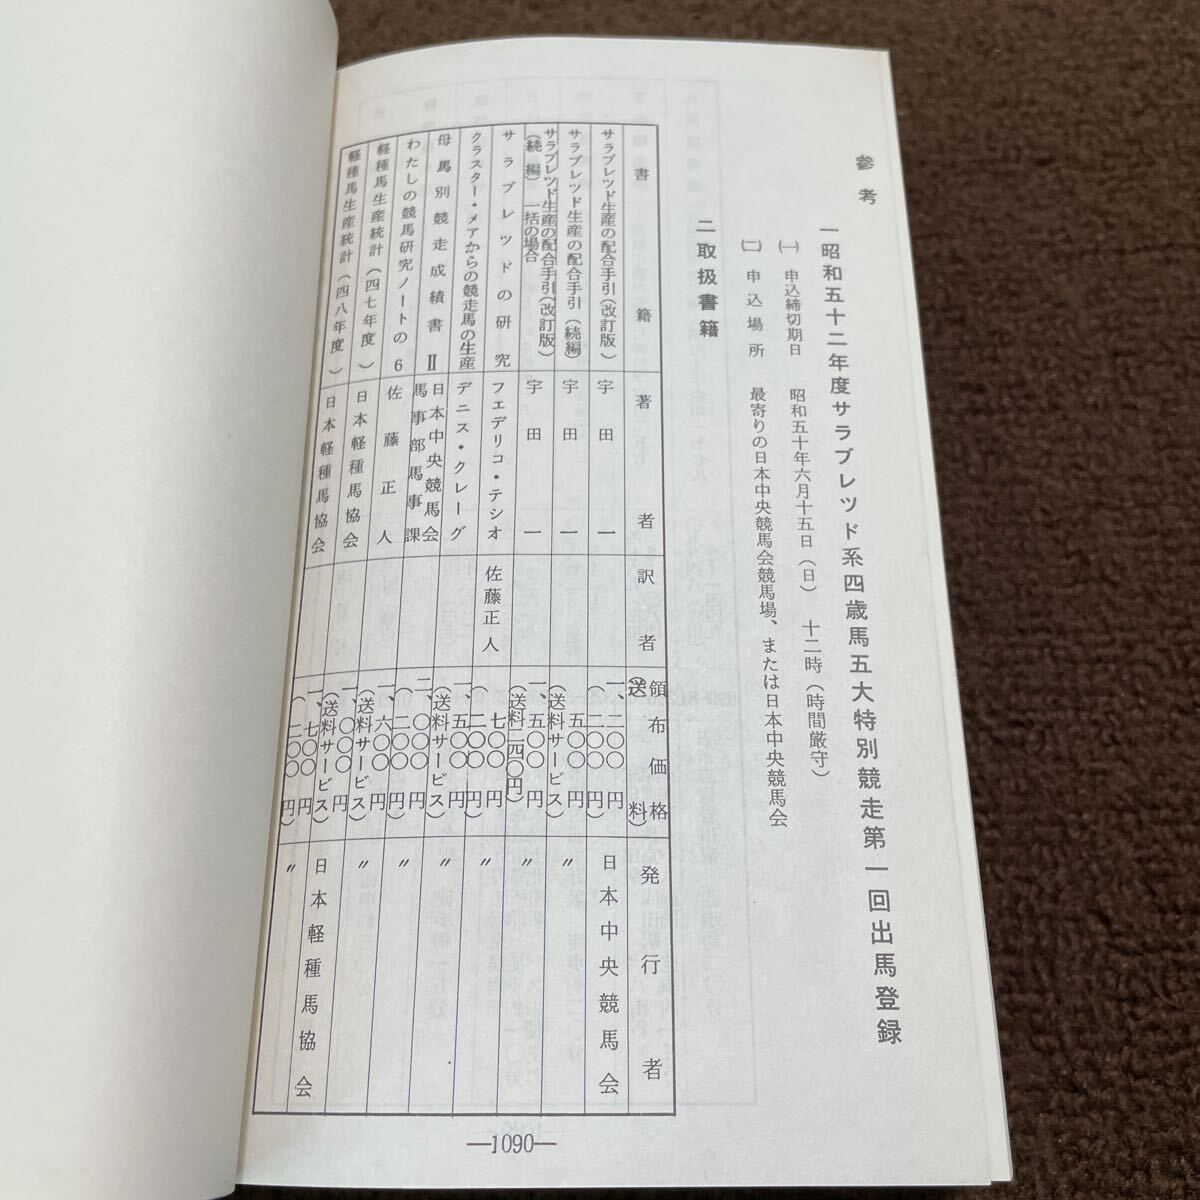 参考
一昭和五十二年度サラブレツド系四歳馬五大特別競走第一回出馬登録
㈠ 申込締切期日 昭和五十年六月十五日(日) 十二時(時間厳守)
㈡ 申込場所 最寄りの日本中央競馬会競馬場、または日本中央競馬会
二取扱書籍
書籍 著者 訳者 領布価格(送料) 発行者
サラブレツド生産の配合手引(改訂版) 宇田一 一、二〇〇円(二〇〇円) 日本中央競馬会
サラブレツド生産の配合手引(続編) 宇田一 五〇〇円(送料サービス) 〃
サラブレツド生産の配合手引(改訂版)
(続編)一括の場合 宇田一 一、五〇〇円(送料二四〇円) 〃
サラブレツドの研究 フェデリコ・テシオ 佐藤正人 七〇〇円(二〇〇円) 〃
クラスター・メアからの競走馬の生産 デニス・クレーグ 一、五〇〇円(送料サービス) 〃
母馬別競走成績書Ⅱ 日本中央競馬会
馬事部馬事課 二、〇〇〇円(二〇〇円) 〃
わたしの競馬研究ノートの6 佐藤正人 一、六〇〇円(送料サービス) 〃
軽種馬生産統計(四七年度) 日本軽種馬協会 一、〇〇〇円(送料サービス) 日本軽種馬協会
軽種馬生産統計(四八年度) 日本軽種馬協会 一、七〇〇円(二〇〇円) 〃
―1090―